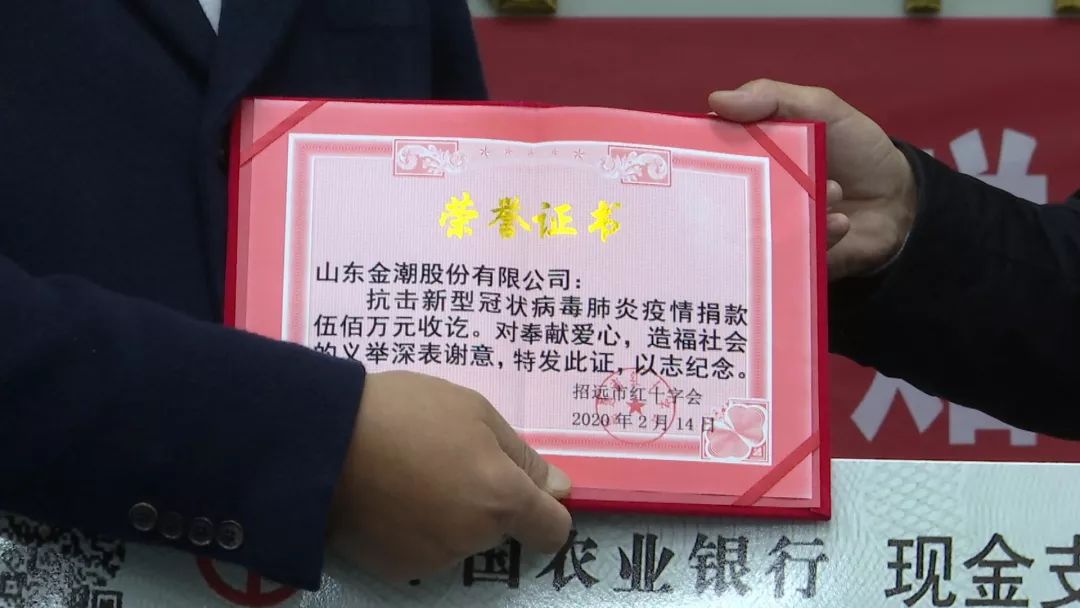 荣誉证书
山东金潮股份有限公司:
抗击新型冠状病毒肺炎疫情捐款
伍佰万元收讫。对奉献爱心，造福社会
的义举深表谢意，特发此证，以志纪念。
招远市红十字会
2020年2月14日
国农业银行 现金支